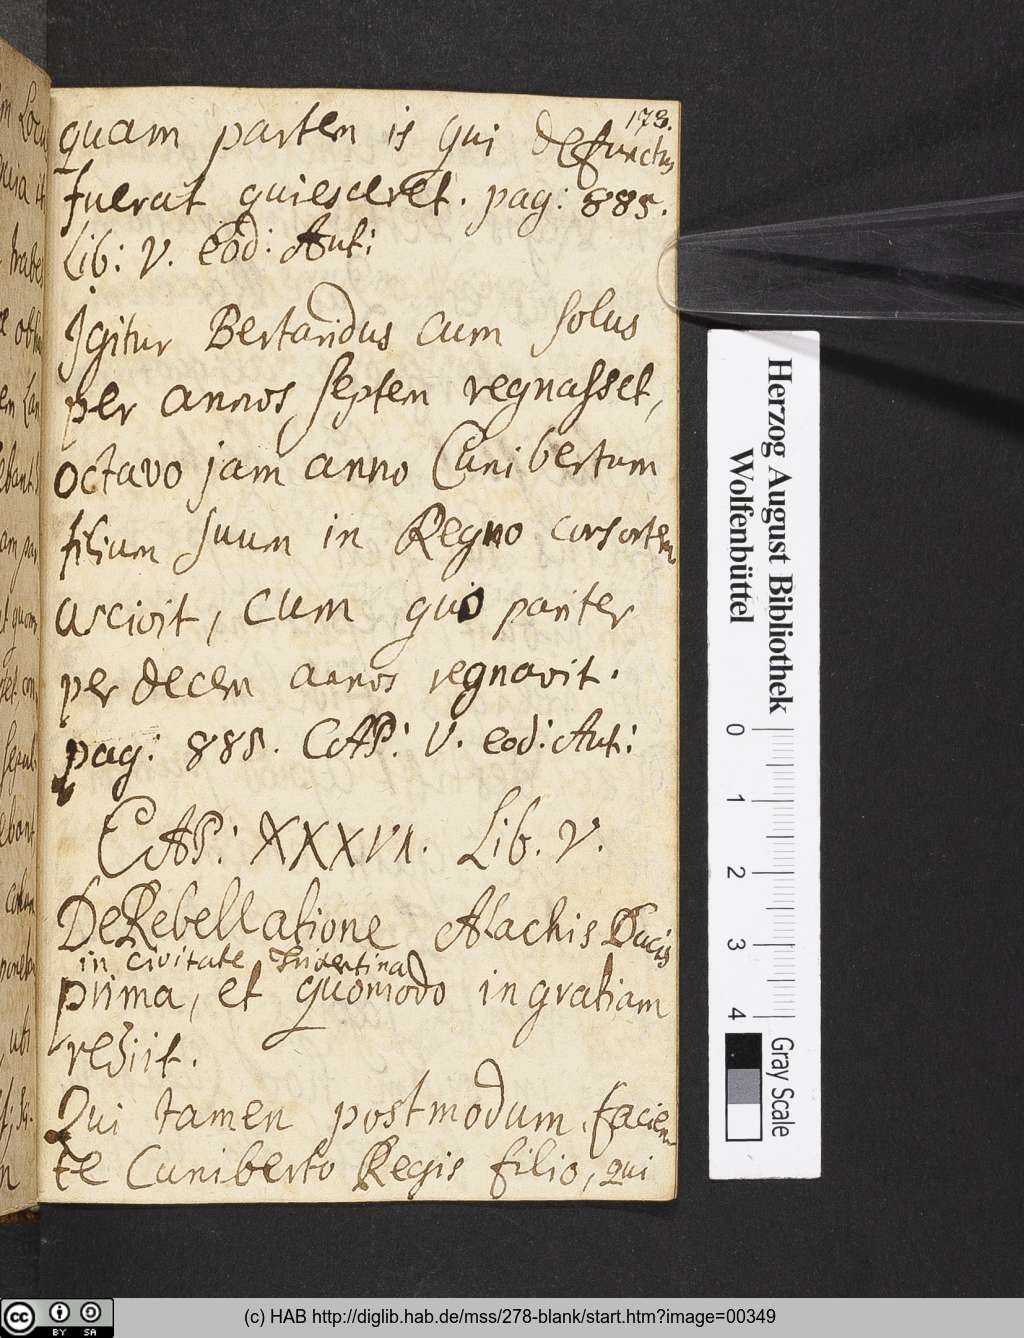 173.
quam partem is qui defunctus
fuerat quiesceret. pag: 885.
Lib: V. eod: Aut:
Igitur Bertaridus cum solus
per annos septem regnasset,
octavo jam anno Cunibertum
filium suum in Regno consortem
ascivit, cum quo pariter
per decem annos regnavit.
pag: 885. CAP: V. eod: Aut:
CAP: XXXVI. Lib. V.
De Rebellatione Alachis Ducis
in civitate Tridentina
prima, et quomodo in gratiam
rediit.
Qui tamen postmodum, facien-
te Cuniberto Regis filio, qui
Herzog August Bibliothek
Wolfenbüttel
0 1 2 3 4
Gray Scale
cc BY SA
(c) HAB http://diglib.hab.de/mss/278-blank/start.htm?image=00349